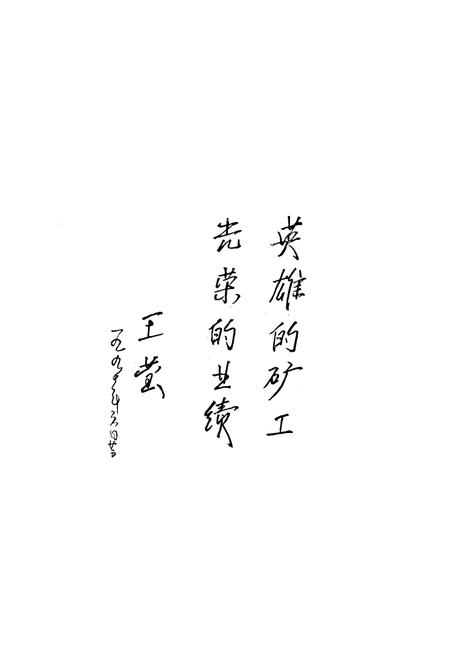 英雄的矿工
光荣的业绩
王莹
一九九〇年六月廿